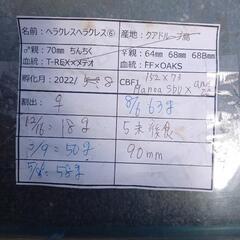 名前:ヘラクレスヘラクレス⑥ 産地:クアドループ島
♂親:70mm ちんちく ♀親:64mm 68mm 68Bmm
血統:T-REX××メテオ 血統:FF×OAKS
孵化月:2022/ 8 CBF1 152×73
割出: 9 8/6 63g
12/16=18g 5未後食
3/9=50g 90mm
5/6=58g